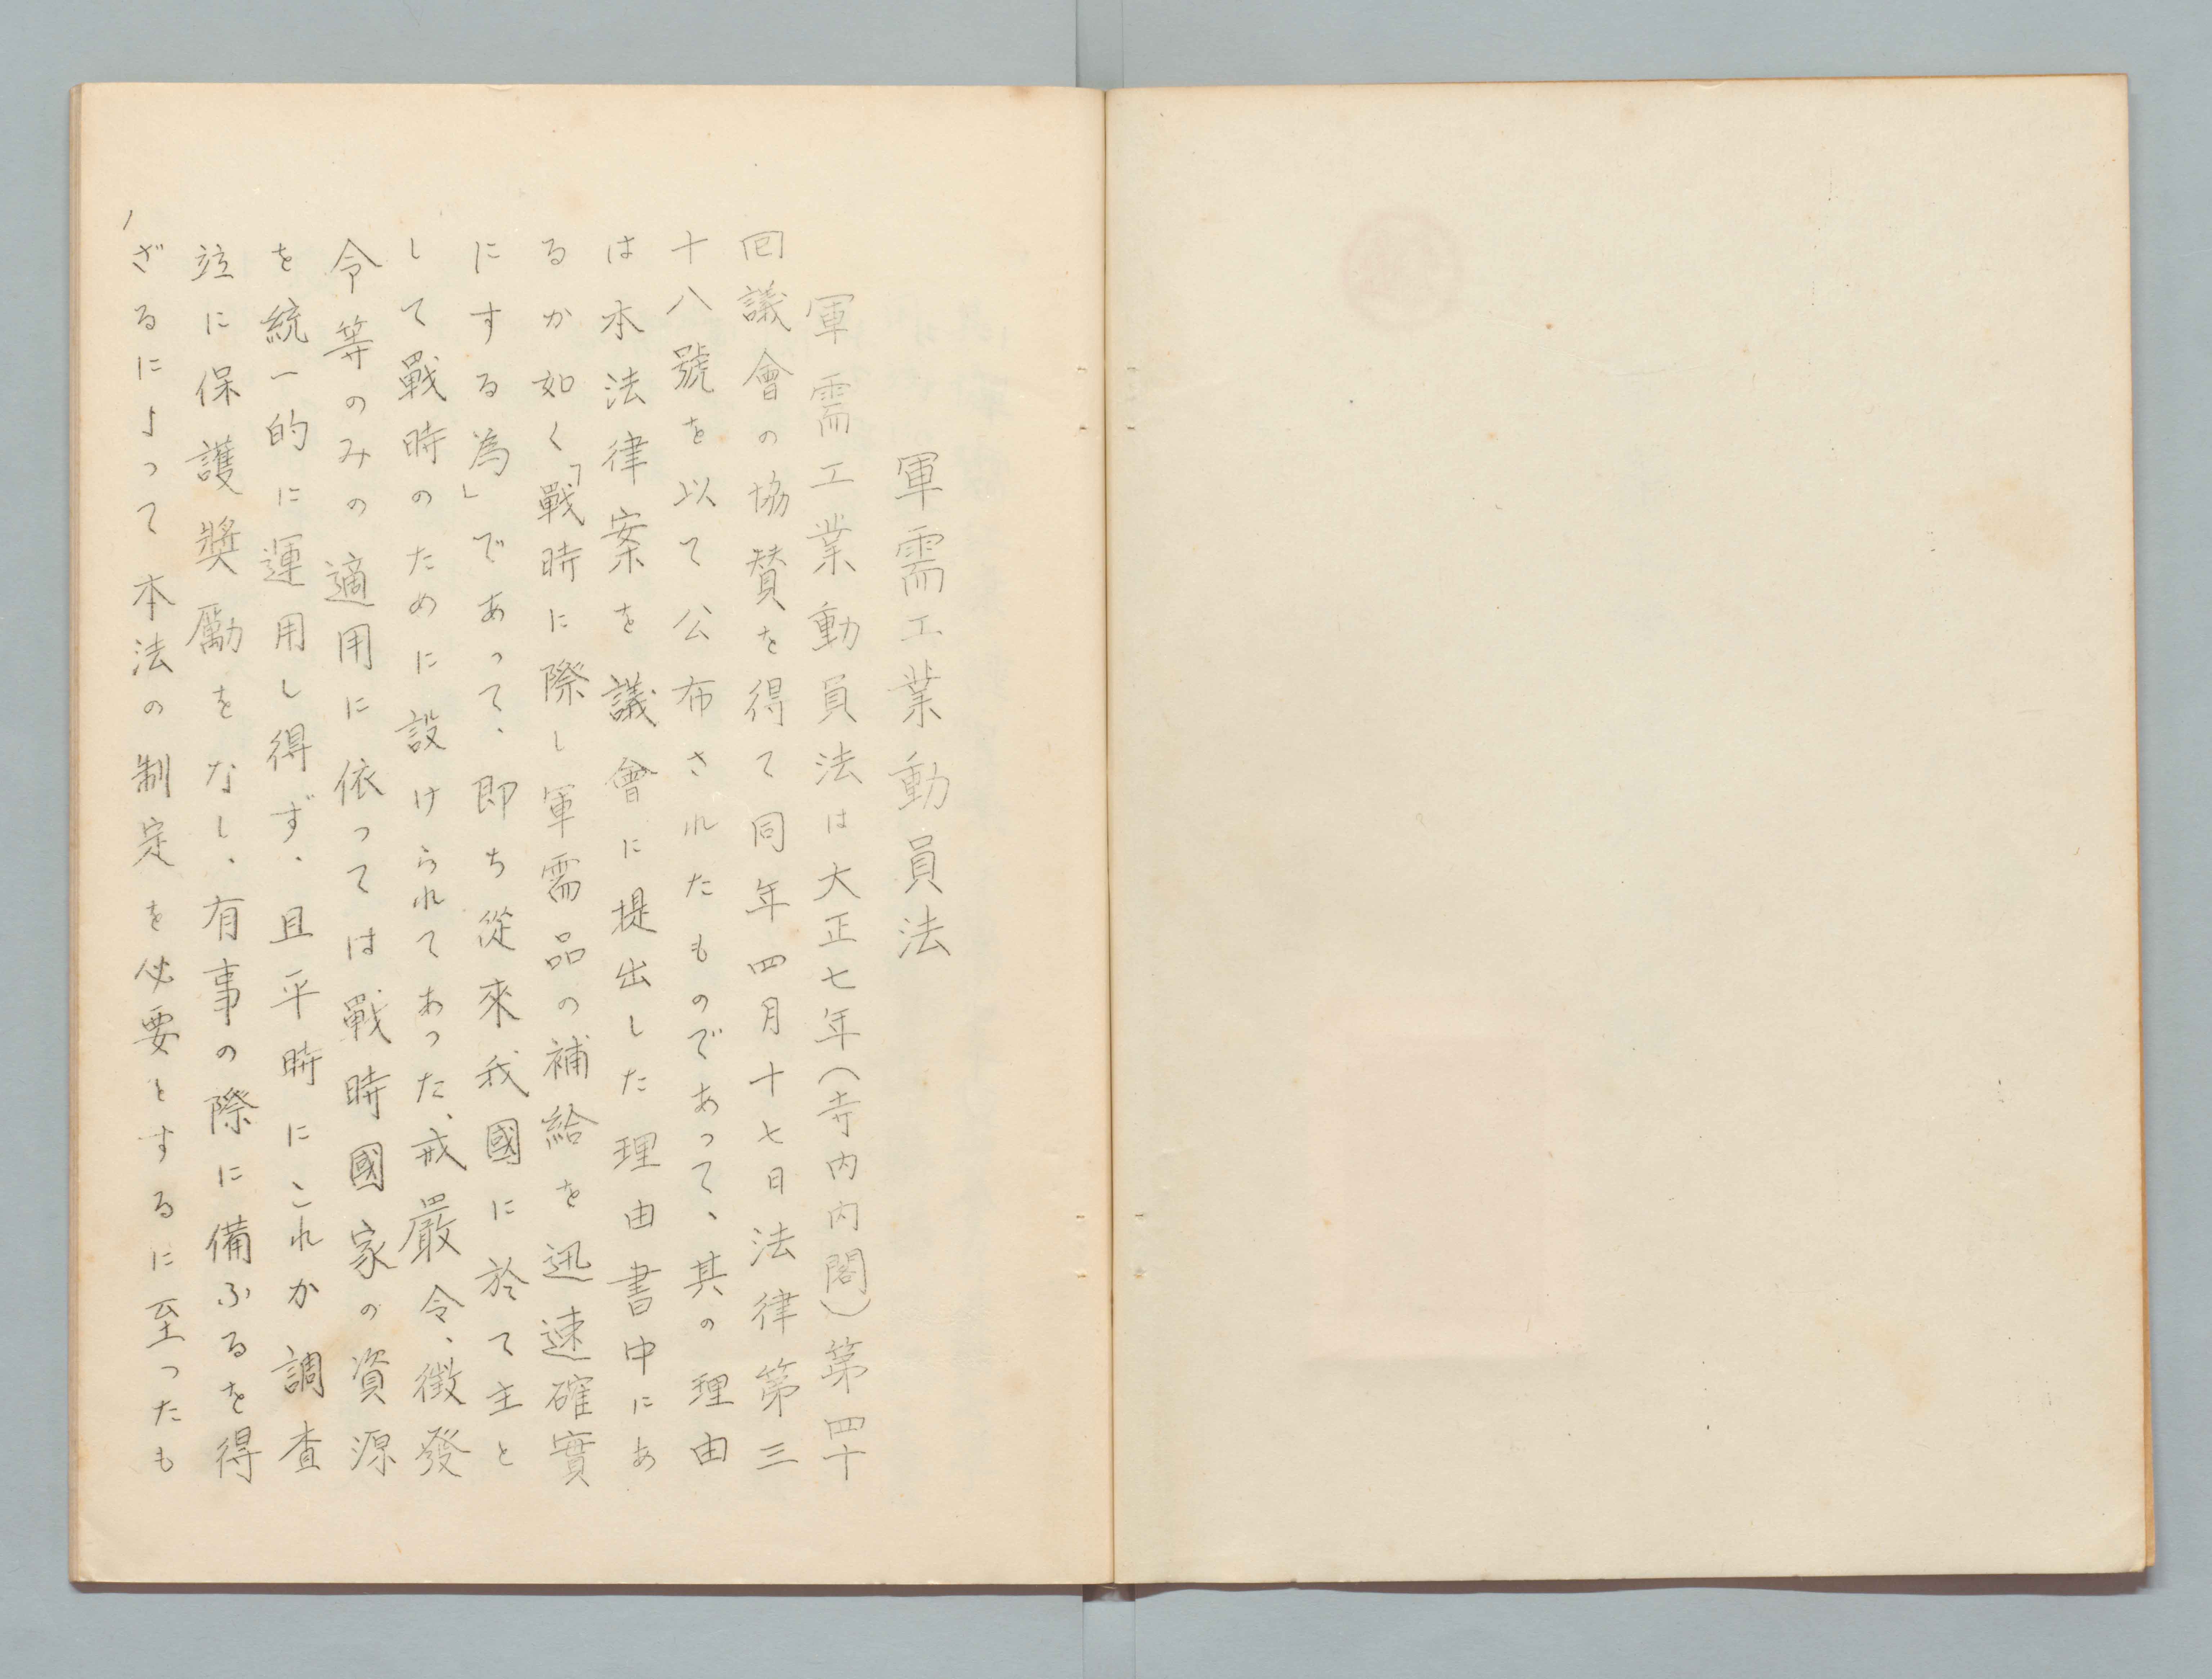 軍需工業動員法
軍需工業動員法は大正七年(寺内内閣)第四十
回議會の協賛を得て同年四月十七日法律第三
十八號を以て公布されたものであって、其の理由
は本法律案を議會に提出した理由書中にあ
るか如く「戰時に際し軍需品の補給を迅速確實
にする為」であって、即ち從來我國に於て主と
して戰時のために設けられてあった、戒嚴令、徴發
令等のみの適用に依っては戰時國家の資源
を統一的に運用し得ず、且平時にこれか調査
竝に保護奬勵をなし、有事の際に備ふるを得
ざるによって本法の制定を必要とするに至ったも